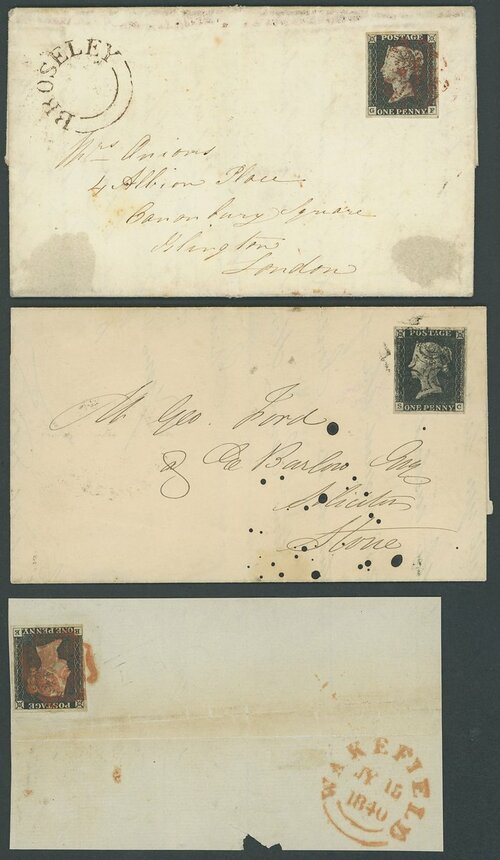 BROSELEY
POSTAGE
G F
ONE PENNY
Mrs Onions
4 Albion Place
Canonbury Square
Islington
London
POSTAGE
S C
ONE PENNY
Geo. Ford
Barlow Esq
Solicitor
Stone
ONE PENNY
POSTAGE
WAKEFIELD
JY 15
1840